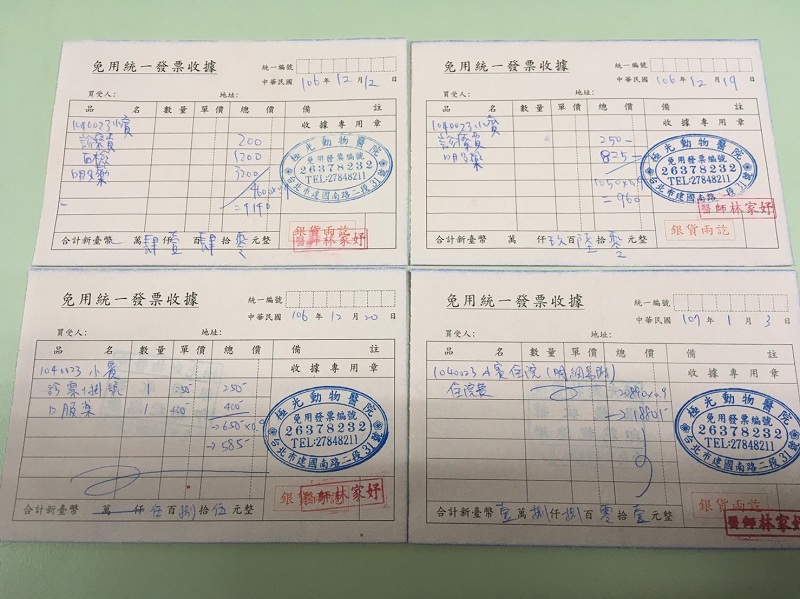 免用統一發票收據
統一編號
中華民國 106 年 12 月 12 日
買受人: 地址:
品 名 數量 單價 總 價 備 註
收據專用章
1040023 小賓
診療費 200
1200
口服藥 3200
=4140
極光動物醫院
免用發票編號
26378232
TEL:27848211
台北市建國南路二段31號
銀貨兩訖
醫師林家妤
合計新臺幣 萬 肆仟壹百肆拾零元整
免用統一發票收據
統一編號
中華民國 106 年 12 月 19 日
買受人: 地址:
品 名 數量 單價 總 價 備 註
收據專用章
1040023 小賓
診療費 250
口服藥 825
=960
極光動物醫院
免用發票編號
26378232
TEL:27848211
台北市建國南路二段31號
醫師林家妤
銀貨兩訖
合計新臺幣 萬 仟玖百陸拾零元整
免用統一發票收據
統一編號
中華民國 106 年 12 月 20 日
買受人: 地址:
品 名 數量 單價 總 價 備 註
收據專用章
1040023 小賓
診察+掛號 1 250 250
口服藥 1 400 400
→650×0.9
→585
極光動物醫院
免用發票編號
26378232
TEL:27848211
台北市建國南路二段31號
銀貨兩訖
醫師林家妤
合計新臺幣 萬 仟伍百捌拾伍元整
免用統一發票收據
統一編號
中華民國 107 年 1 月 3 日
買受人: 地址:
品 名 數量 單價 總 價 備 註
收據專用章
1040023 小賓住院(明細為附)
住院費 20890×0.9
→18801
極光動物醫院
免用發票編號
26378232
TEL:27848211
台北市建國南路二段31號
銀貨兩訖
醫師林家妤
合計新臺幣 壹萬捌仟捌百零拾壹元整